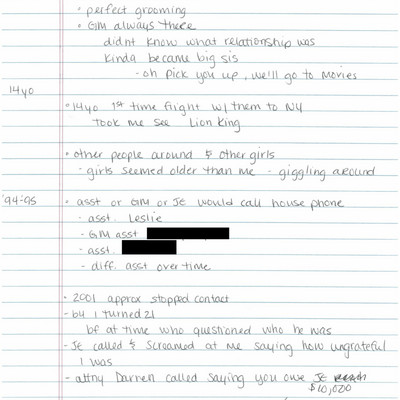 • perfect grooming
• GM always there
didnt know what relationship was
kinda became big sis
- oh pick you up, we'll go to movies
14yo
• 14yo 1st time flight w/ them to NY
Took me see Lion King
• other people around & other girls
- girls seemed older than me - giggling around
'94-95
• asst or GM or JE would call house phone
- asst. Leslie
- GM asst
- asst.
- diff. asst over time
• 2001 approx stopped contact
- b4 I turned 21
bf at time who questioned who he was
- JE called & screamed at me saying how ungrateful
I was
- attny Darren called saying you owe JE
$10,000